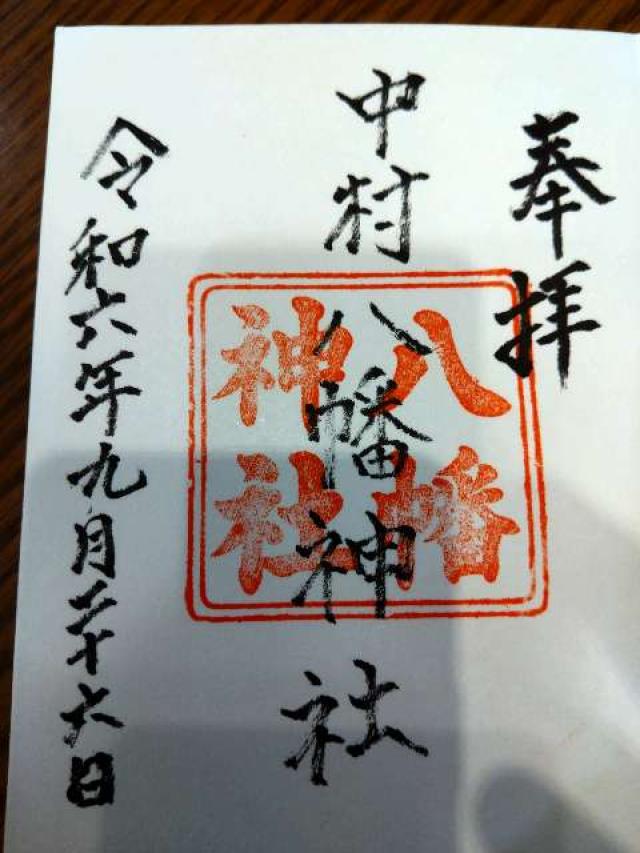 奉拝
中村八幡神社
八幡
神社
令和六年九月二十六日